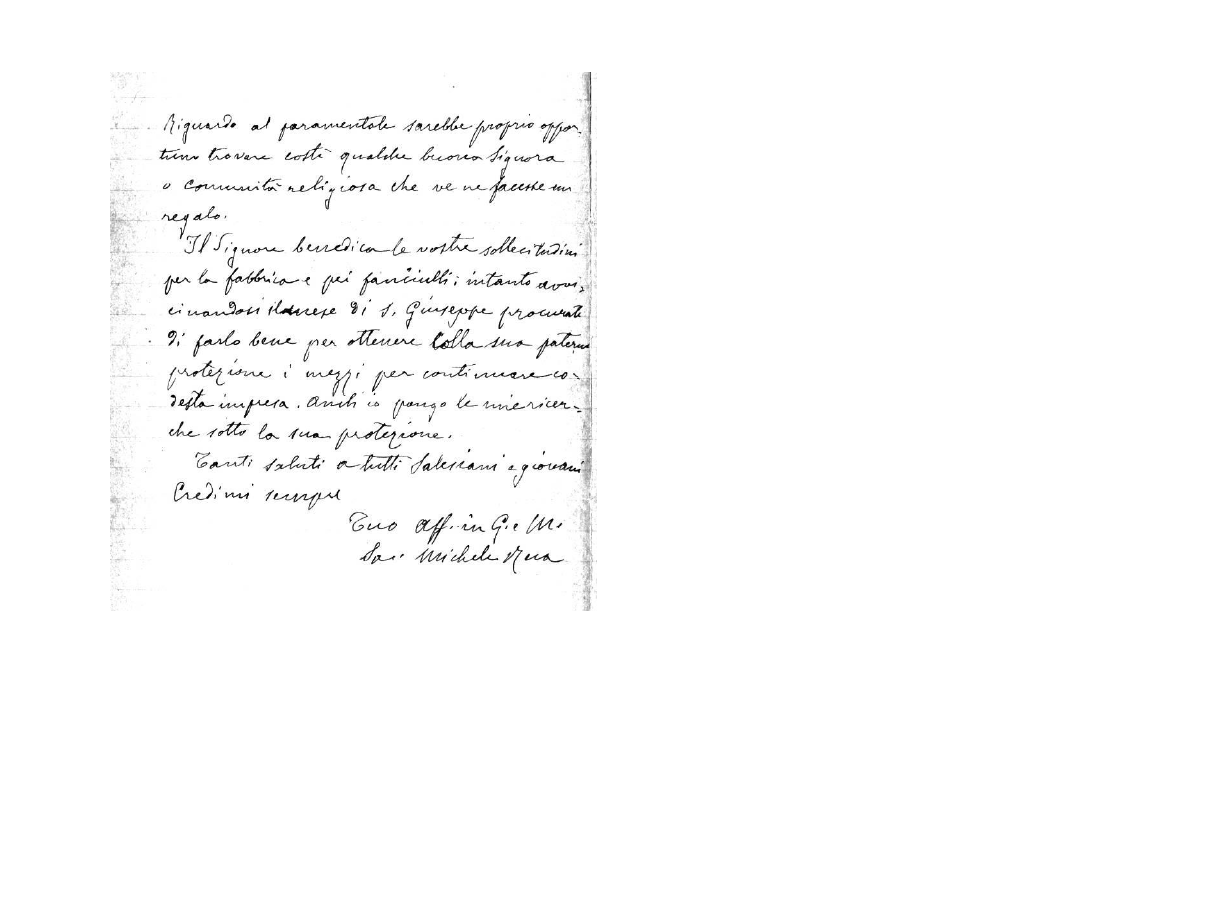 Riguardo al paramentale sarebbe proprio oppor-
tuno trovare costì qualche buona Signora
o comunità religiosa che ve ne facesse un
regalo.
Il Signore benedica le vostre sollecitudini
per la fabbrica e pei fanciulli; intanto avvi-
cinandosi il mese di S. Giuseppe procurate
di farlo bene per ottenere colla sua paterna
protezione i mezzi per continuare co-
desta impresa. Anch'io pongo le mie ricer-
che sotto la sua protezione.
Tanti saluti a tutti Salesiani e giovani
Credimi sempre
Tuo aff. in G. e M.
Sac. Michele Rua